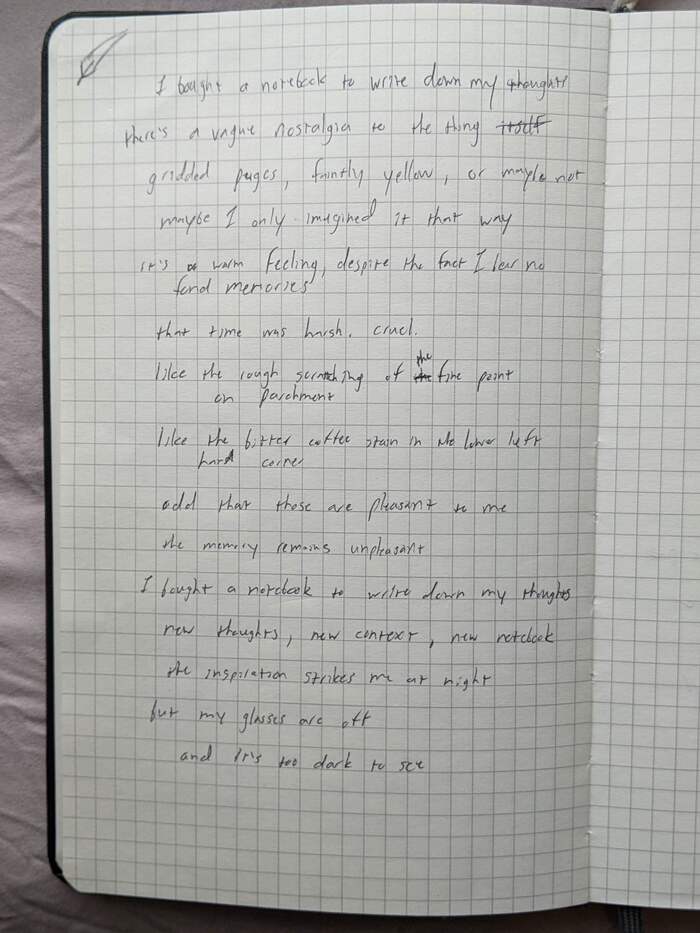 I bought a notebook to write down my thoughts
there's a vague nostalgia to the thing itself
gridded pages, faintly yellow, or maybe not
maybe I only imagined it that way
it's a warm feeling, despite the fact I bear no
fond memories
that time was harsh. cruel.
like the rough scratching of the fine point
on parchment
like the bitter coffee stain in the lower left
hand corner
odd that those are pleasant to me
the memory remains unpleasant
I bought a notebook to write down my thoughts
new thoughts, new context, new notebook
the inspiration strikes me at night
but my glasses are off
and it's too dark to see